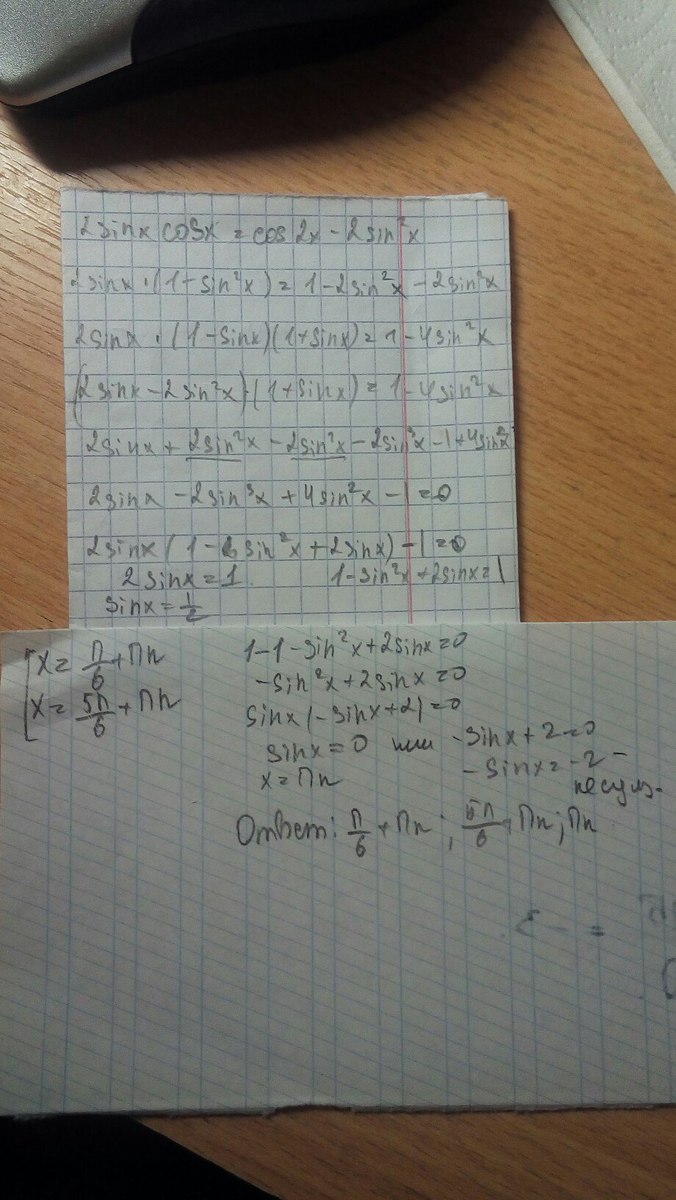 2sinx cosx = cos2x - 2sin²x
2sinx · (1 - sin²x) = 1 - 2sin²x - 2sin²x
2sinx · (1 - sinx)(1 + sinx) = 1 - 4sin²x
(2sinx - 2sin²x) · (1 + sinx) = 1 - 4sin²x
2sinx + 2sin²x - 2sin²x - 2sin³x - 1 + 4sin²x
2sinx - 2sin³x + 4sin²x - 1 = 0
2sinx (1 - sin²x + 2sinx) - 1 = 0
2sinx = 1 1 - sin²x + 2sinx = 1
sinx = 1/2
x = π/6 + πn
x = 5π/6 + πn
1 - 1 - sin²x + 2sinx = 0
-sin²x + 2sinx = 0
sinx (-sinx + 2) = 0
sinx = 0 или -sinx + 2 = 0
x = πn -sinx = -2 -
Ответ: π/6 + πn ; 5π/6 + πn ; πn